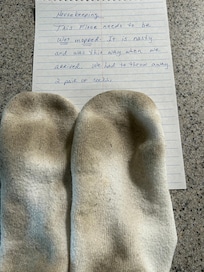 Housekeeping,
This Floor needs to be
wet mopped. It is nasty
and was this way when we
arrived. We had to throw away
2 pair of socks.